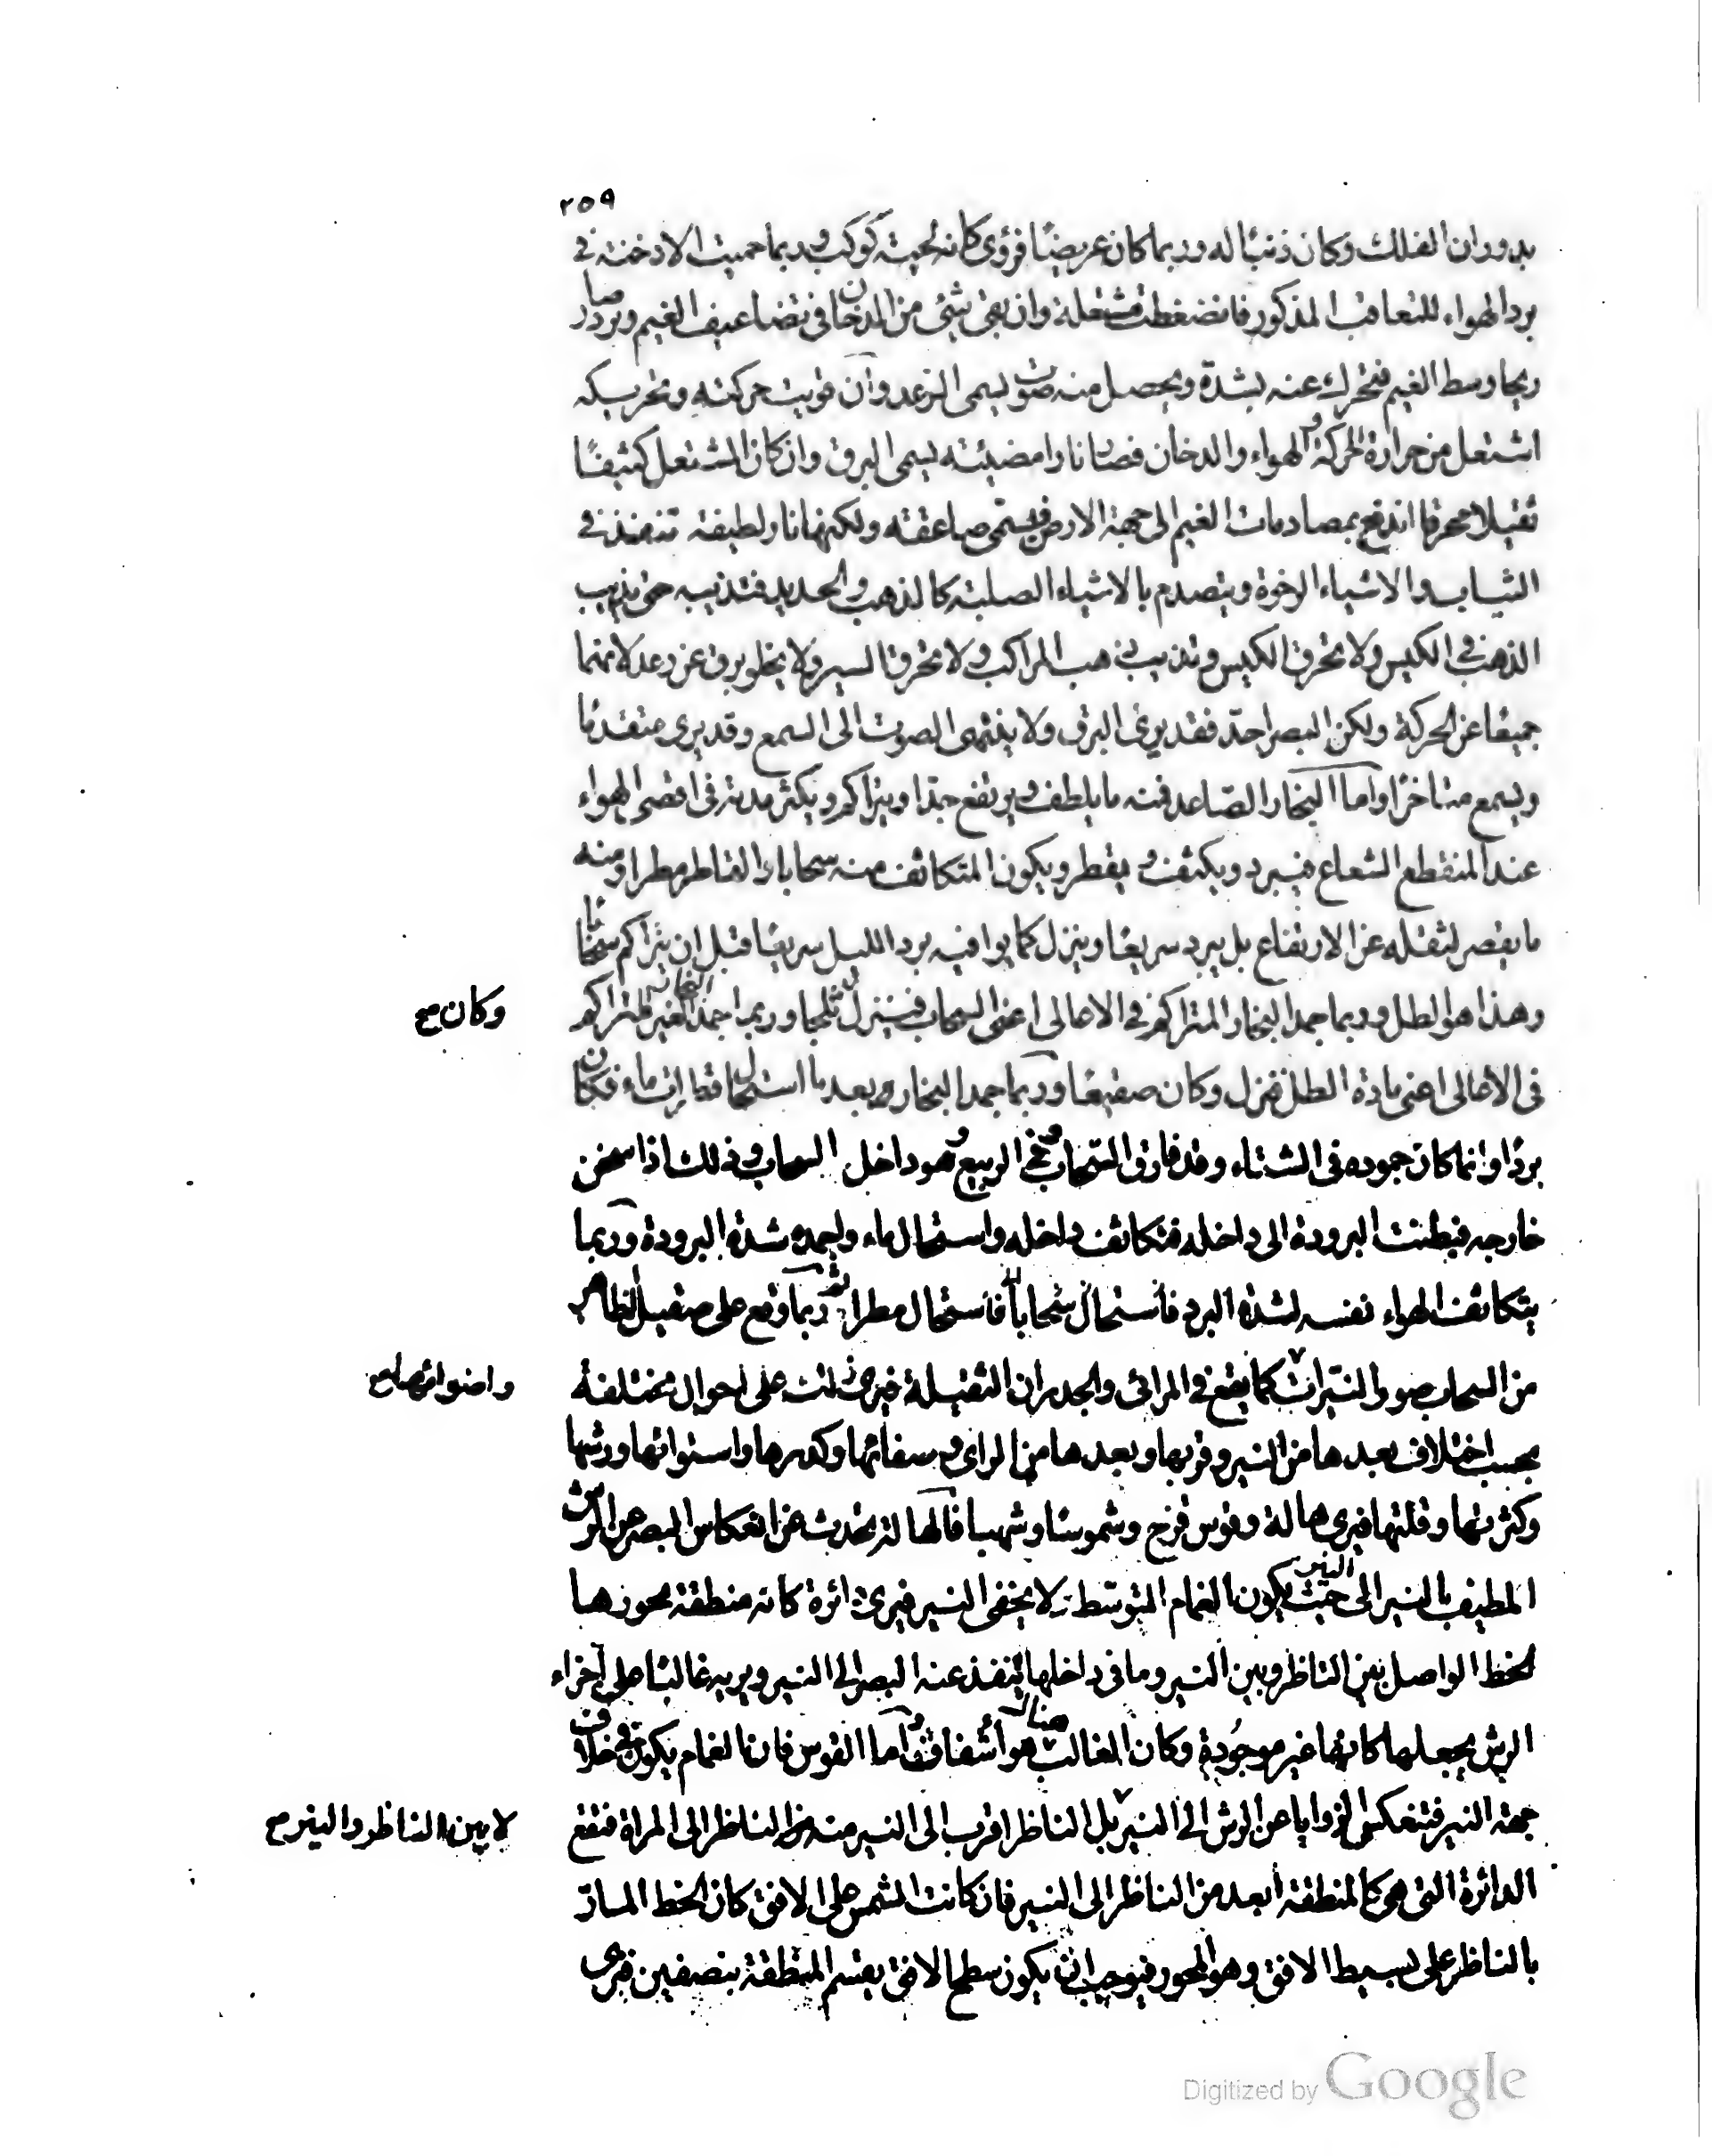 ٢٥٩
بدوران الفلك وكان ذنبا له وربما كان عريضا فرؤى كانه لحية كوكب وربما حميت الادخنة فى
برد الهواء للتعاقب المذكور فانضغطت مشتعلة وان بقى شئ من الدخان فى تضاعيف الغيم وبرد صار
ريحا وسط الغيم فتحرك عنه بشدة ويحصل منه صوت يسمى الرعد وان قويت حركته وتحريكه
اشتعل من حرارة الحركة والهواء والدخان فصار نارا مضيئة يسمى البرق وان كان المشتعل كثيفا
ثقيلا محرقا اندفع بمصادمات الغيم الى جهة الارض فيسمى صاعقة ولكنها نار لطيفة تنفذ فى
الثياب والاشياء الرخوة ويتصدم بالاشياء الصلبة كالذهب والحديد فتذيبه حتى يذيب
الذهب فى الكيس ولا يحرق الكيس وتذيب ذهب المراكب ولا تحرق السير ولا يخلو برق عن رعد لانهما
جميعا عن الحركة ولكن البصر احد فقد يرى البرق ولا ينتهى الصوت الى السمع وقد يرى متقدما
ويسمع متاخرا واما البخار الصاعد فمنه ما يلطف ويرتفع جدا ويتراكم ويكثر مدته فى اقصى الهواء
عند المنقطع الشعاع فيبرد ويكثف و يقطر ويكون المتكاثف منه سحابا والقاطر مطرا ومنه
ما يقصر لثقله عن الارتفاع بل يبرد سريعا وينزل كما يوافيه برد الليل سريعا قبل ان يتراكم سحابا
وهذا هو الطل وربما جمد البخار المتراكم فى الاعالى اعنى السحاب فينزل ثلجا وربما جمد البخار الغير المتراكم
وكان صح
فى الاعالى اعنى مادة الطل فنزل وكان صقيعا وربما جمد البخار بعد ما استحال قطرات ماء فكان
بردا وانما كان جموده فى الشتاء وقد فارق السحاب وفى الربيع وهو داخل السحاب وذلك اذا سخن
خارجه فبطنت البرودة الى داخله فتكاثف داخله واستحال ماء واجمده شدة البرودة وربما
يتكاثف الهواء نفسه لشدة البرد فاستحال سحابا فاستحال مطرا ثم ربما وقع على صقيل الظاهر
من السحاب صور النيرات كما يقع فى المرائى والجدران الثقيلة فيرى ذلك على احوال مختلفة
واضوائها صح
بحسب اختلاف بعدها من النير وقربها وبعدها من الرأى وصفائها وكدرها واستوائها ورشها
وكثرتها وقلتها فيرى هالة وقوس قزح وشموسا وشهبا فالهالة تحدث عن انعكاس البصر عن الرش
المطيف بالنير الى النير حيث يكون الغمام المتوسط لا يخفى النير فيرى دائرة كانه منطقة محورها
الخط الواصل بين الناظر وبين النير وما فى داخلها ينفذ عنه البصر الى النير ويريه غالبا على اجزاء
الرش يجعلها كانها غير موجودة وكان الغالب هناك هواء شفاف واما القوس فان الغمام يكون فى خلاف
جهة النير فتنعكس الزوايا عن الرش الى النير بل الناظر اقرب الى النير منه من الناظر الى المراة فتقع
لا بين الناظر والنير صح
الدائرة التى هى كالمنطقة ابعد من الناظر الى النير فان كانت الشمس على الافق كان الخط المار
بالناظر على بسيط الافق وهو المحور فيوجب ان يكون سطح الافق يقسم المنطقة بنصفين فيرى
Digitized by Google